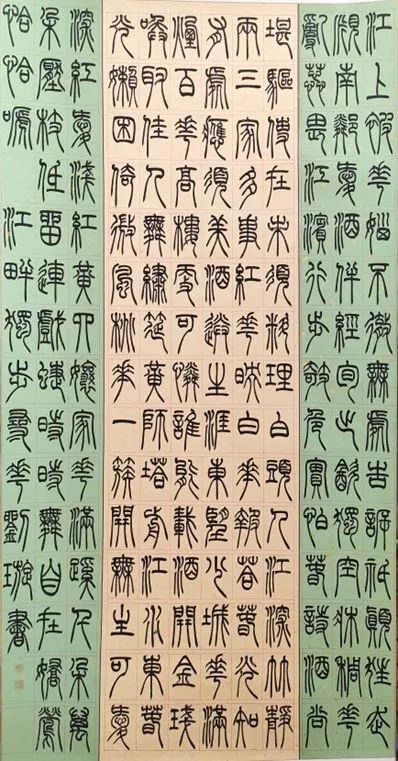 江上被花惱不徹無處告訴祇顛狂走
覓南鄰愛酒伴經旬出飲獨空牀稠花
亂蕊畏江濱行步欹危實怕春詩酒尚
堪驅使在未須料理白頭人江深竹靜
兩三家多事紅花映白花報答春光知
有處應須美酒送生涯東望少城花滿
煙百花高樓更可憐誰能載酒開金琖
喚取佳人舞繡筵黃師塔前江水東春
光嬾困倚微風桃花一簇開無主可愛
深紅愛淺紅黃四孃家花滿蹊千朵萬
朵壓枝低留連戲蝶時時舞自在嬌鶯
恰恰嗁 江畔獨步尋花 劉璇書